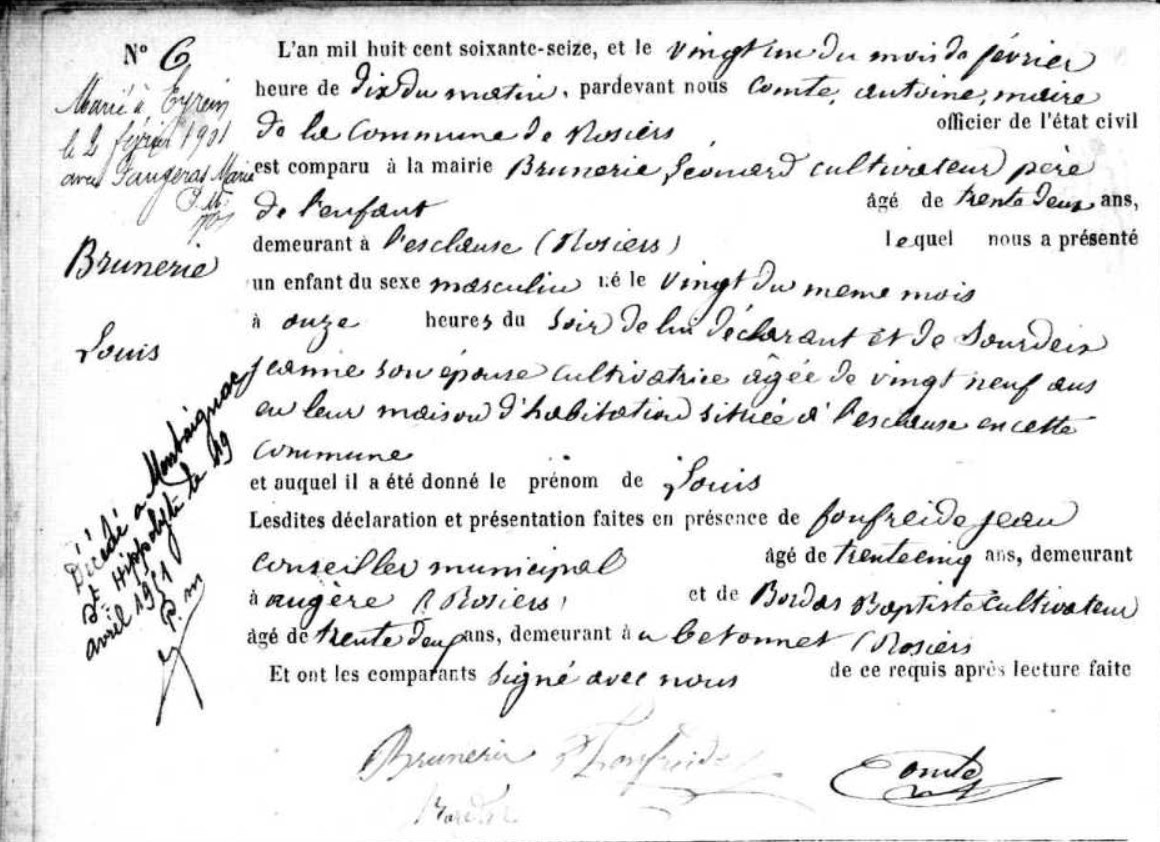 N° 6
Marié à Eyrein
le 2 février 1901
avec Faugeras Marie
Brunerie
Louis
Décédé a Montaignac
St. Hippolyte le 19
avril 1951
L'an mil huit cent soixante-seize, et le vingt un du mois de février
heure de dix du matin, pardevant nous Comte, antoine, maire
de la Commune de Rosiers officier de l'état civil
est comparu à la mairie Brunerie Léonard cultivateur père
de l'enfant âgé de trente deux ans,
demeurant à l'esclause (Rosiers) lequel nous a présenté
un enfant du sexe masculin né le vingt du meme mois
à onze heures du soir de lui déclarant et de Sourdeix
jeanne son épouse cultivatrice âgée de vingt neuf ans
en leur maison d'habitation située à l'esclause en cette
commune
et auquel il a été donné le prénom de Louis
Lesdites déclaration et présentation faites en présence de fonfreide jean
conseiller municipal âgé de trente cinq ans, demeurant
à augère (Rosiers) et de Bordas Baptiste cultivateur
âgé de trente deux ans, demeurant à betonnet (Rosiers
Et ont les comparants signé avec nous de ce requis après lecture faite
Brunerie Fonfreide Comte
Bordas